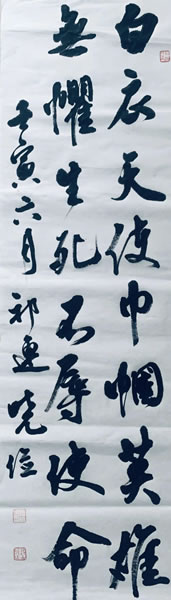 白衣天使巾帼英雄
無懼生死不辱使命
壬寅六月祁連曉俭